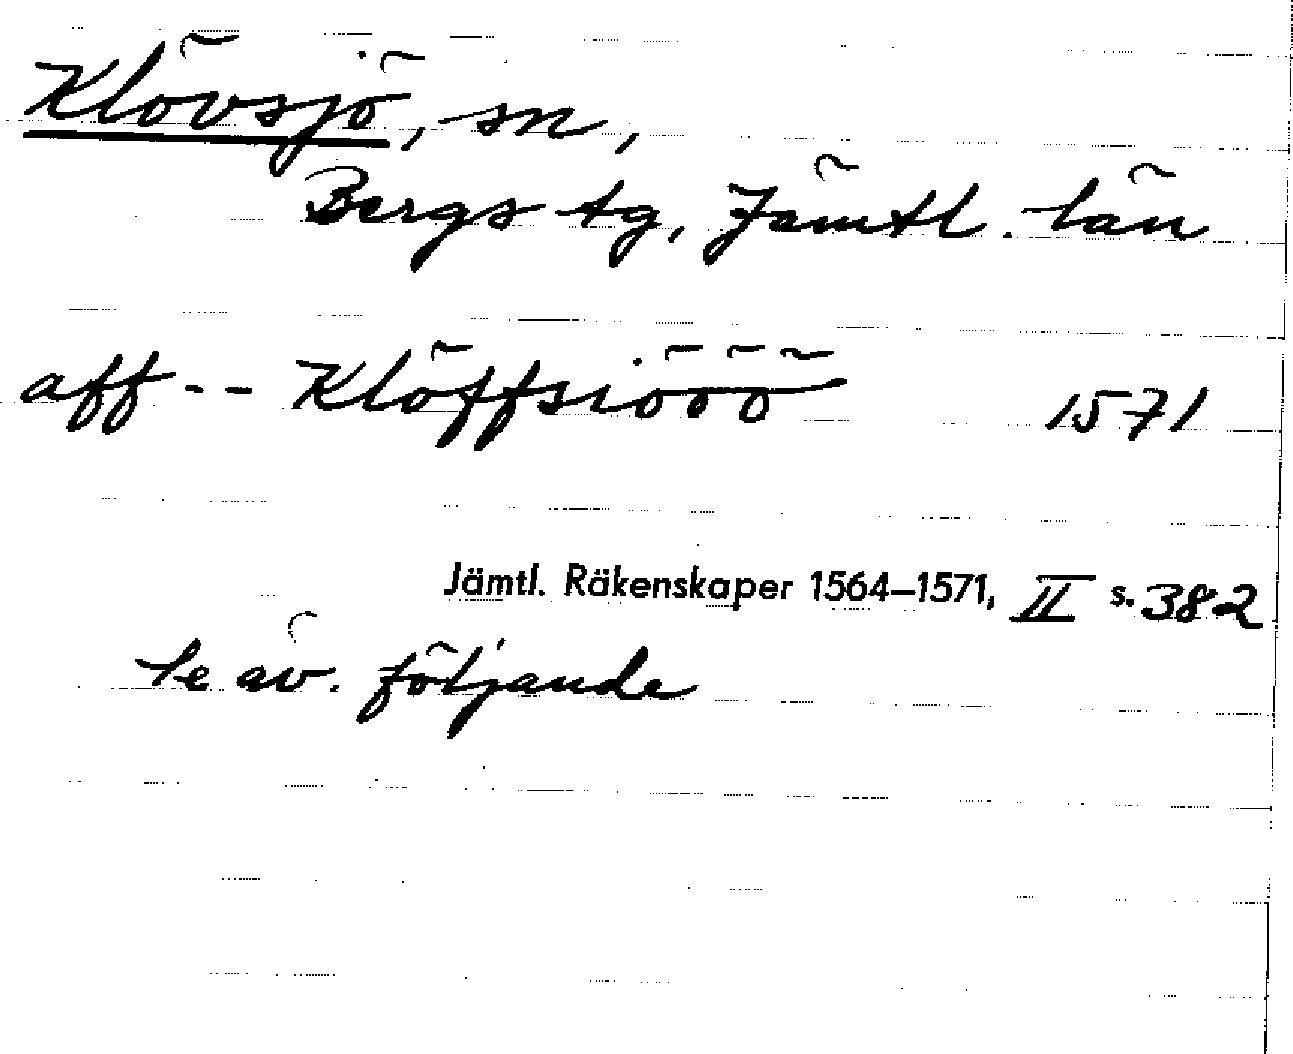 Klövsjö, sn,
Bergs tg, Jämtl. län
aff -- Klöffsiööö 1571
Jämtl. Räkenskaper 1564–1571, II s. 382
Se äv. följande